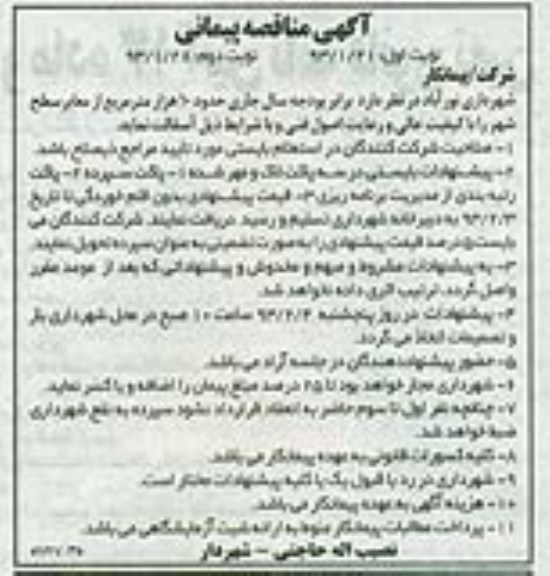 آگهی مناقصه پیمانی
نوبت اول: ۹۳/۱/۲۱ نوبت دوم: ۹۳/۱/۲۸
شرکت/پیمانکار
شهرداری نورآباد در نظر دارد برابر بودجه سال جاری حدود ۱۰ هزار مترمربع از معابر سطح
شهر را با کیفیت عالی و رعایت اصول فنی و با شرایط ذیل آسفالت نماید.
۱- صلاحیت شرکت کنندگان در استعلام بایستی مورد تایید مراجع ذیصلاح باشد.
۲- پیشنهادات بایستی در سه پاکت لاک و مهر شده ۱- پاکت سپرده ۲- پاکت
رتبه بندی از مدیریت برنامه ریزی ۳- قیمت پیشنهادی بدون قلم خوردگی تا تاریخ
۹۳/۲/۳ به دبیرخانه شهرداری تسلیم و رسید دریافت نمایند. شرکت کنندگان می
بایست ۵ درصد قیمت پیشنهادی را به صورت تضمینی به عنوان سپرده تحویل نمایند.
۳- به پیشنهادات مشروط و مبهم و مخدوش و پیشنهاداتی که بعد از موعد مقرر
واصل گردد، ترتیب اثری داده نخواهد شد.
۴- پیشنهادات در روز پنجشنبه ۹۳/۲/۴ ساعت ۱۰ صبح در محل شهرداری باز
و تصمیمات اتخاذ می گردد.
۵- حضور پیشنهاددهندگان در جلسه آزاد می باشد.
۶- شهرداری مجاز خواهد بود تا ۲۵ درصد مبلغ پیمان را اضافه و یا کسر نماید.
۷- چنانچه نفر اول تا سوم حاضر به انعقاد قرارداد نشود سپرده به نفع شهرداری
ضبط خواهد شد.
۸- کلیه کسورات قانونی به عهده پیمانکار می باشد.
۹- شهرداری در رد یا قبول یک یا کلیه پیشنهادات مختار است.
۱۰- هزینه آگهی به عهده پیمانکار می باشد.
۱۱- پرداخت مطالبات پیمانکار منوط به ارائه شیت آزمایشگاهی می باشد.
نصیب اله حاجتی - شهردار